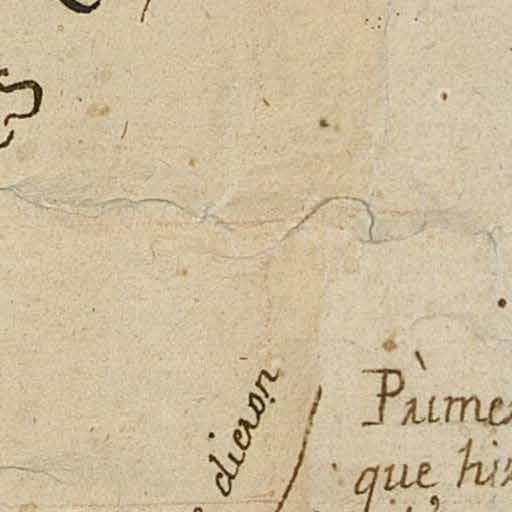 dieron
Primer
que hiz